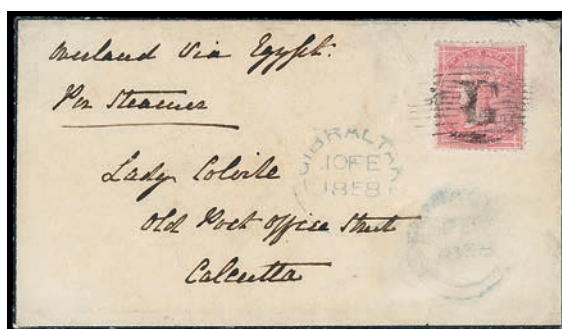 Overland via Egypt.
Per Steamer
G
GIBRALTAR
10 FE
1858
Lady Colvile
Old Post Office Street
Calcutta